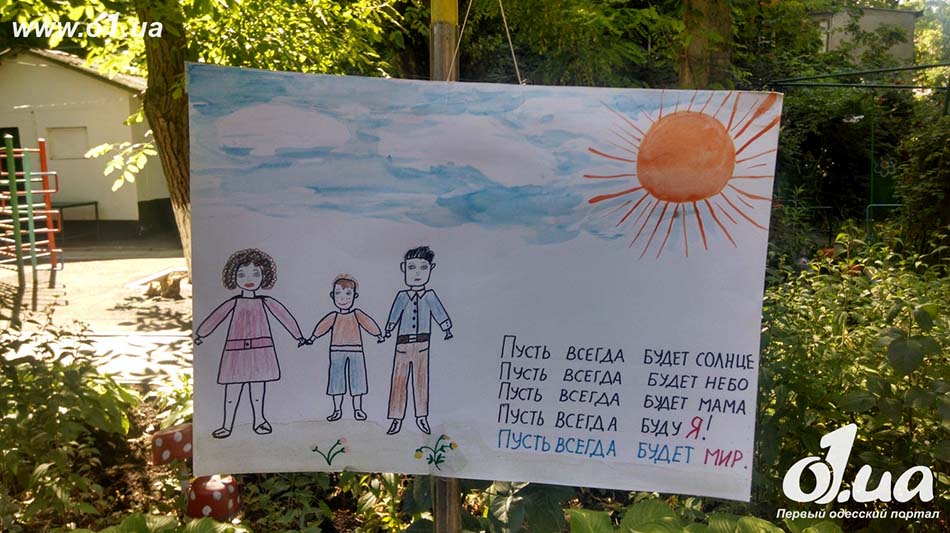 www.o1.ua
Пусть всегда будет солнце
Пусть всегда будет небо
Пусть всегда будет мама
Пусть всегда буду Я!
Пусть всегда будет мир.
o1.ua
Первый одесский портал